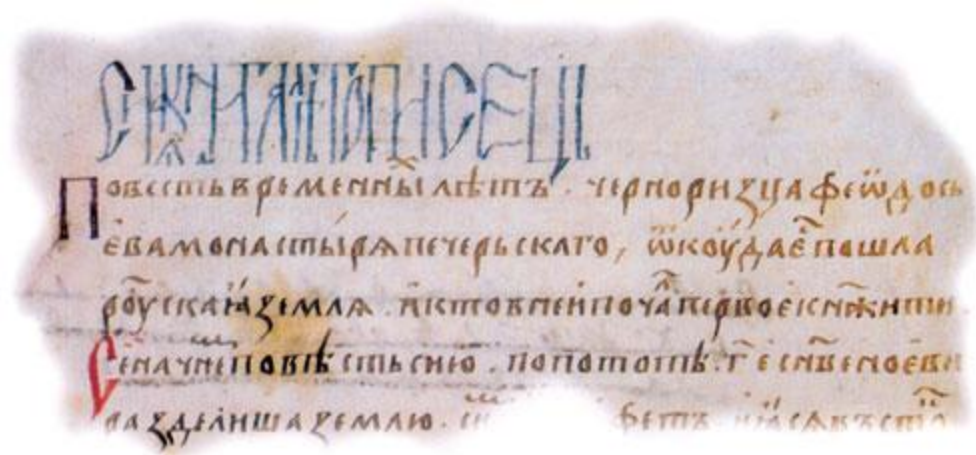 Повесть временны́х лѣтъ . черноризца феѡдось
ева монастыря печерьскаго, ѿкоуда є̃ пошла
роу̃скаꙗ земля . кто в неи поча̃ первоє кнѧжити
Се начнем повѣсть сию . по потопѣ . г҃ е сн҃ве ноєви
раздѣлиша землю . фетъ